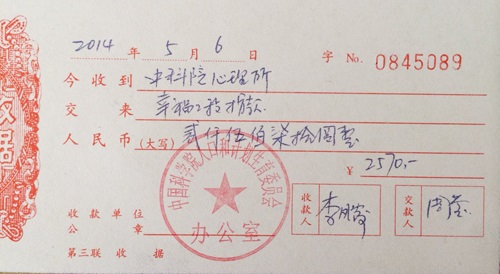 2014 年 5 月 6 日 字 No. 0845089
今收到 中科院心理所
交来 幸福工程捐款
人民币(大写) 贰仟伍佰柒拾圆整
¥ 2570.-
中国科学院人口和计划生育委员会
办公室
收款单位
公章
收款人
交款人 周莹
第三联 收据
收据